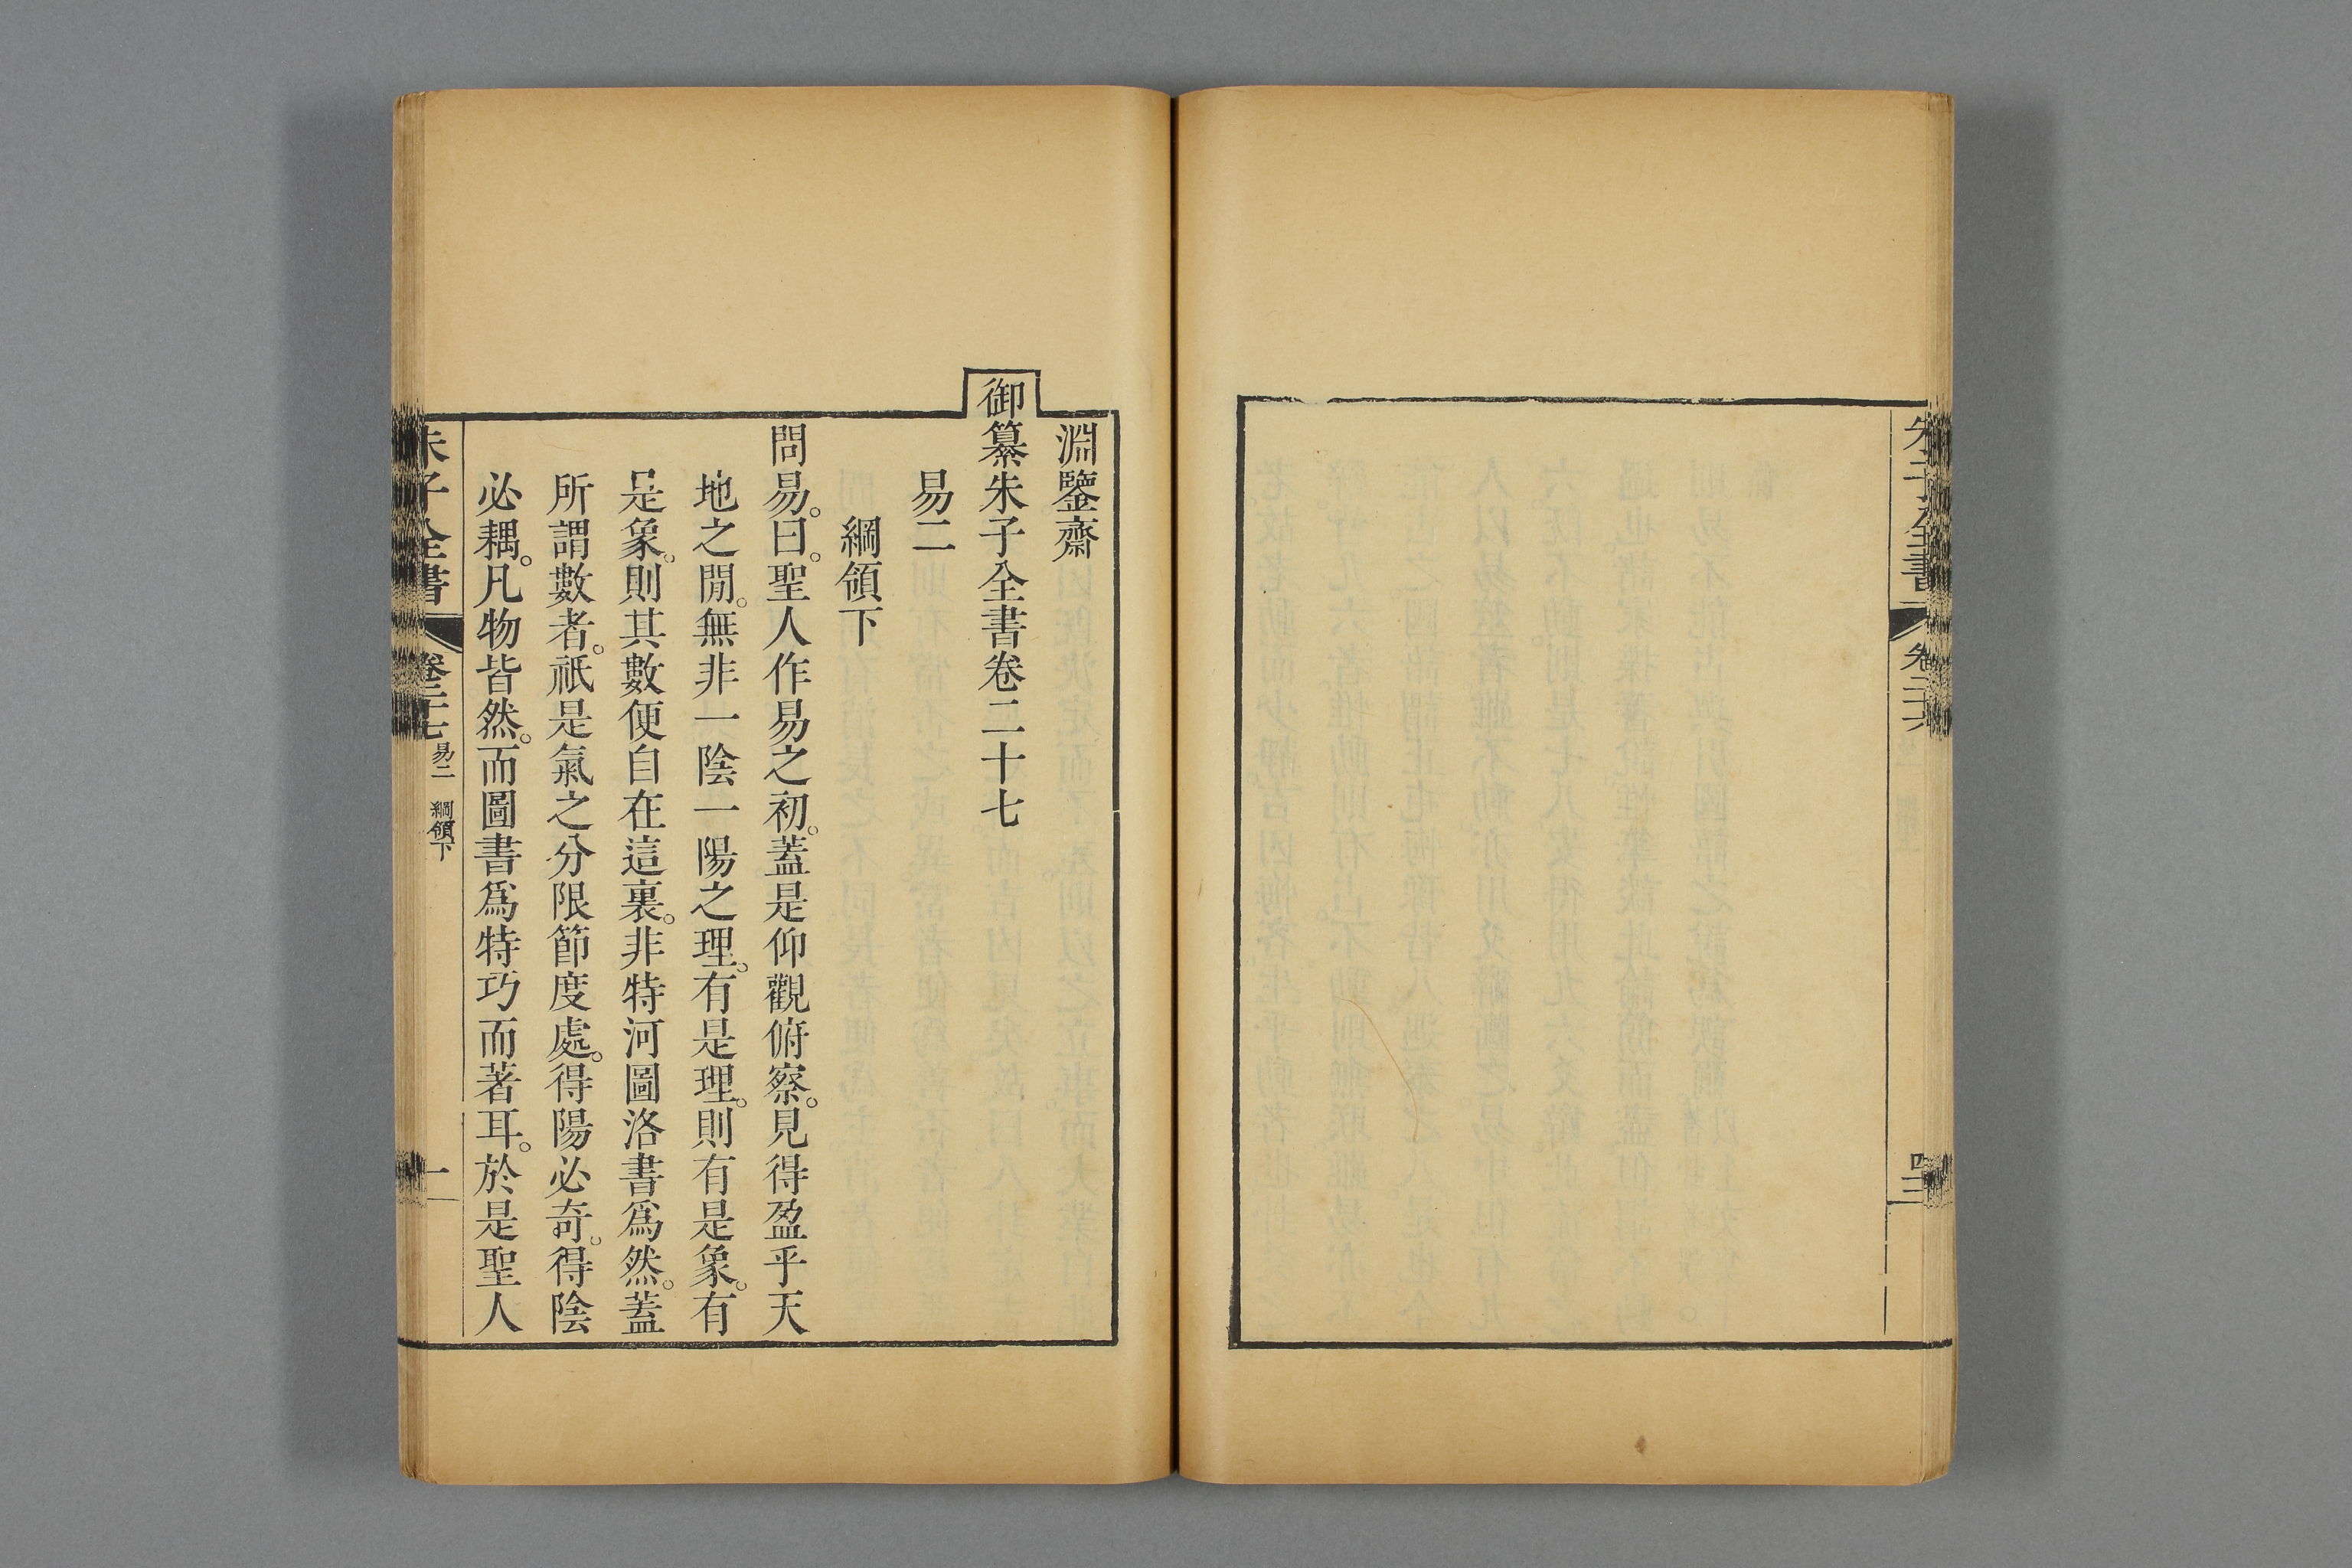 朱子全書 卷二十六 四十三
淵鑒齋
御纂朱子全書卷二十七
易二
綱領下
問易。曰。聖人作易之初。蓋是仰觀俯察。見得盈乎天
地之閒。無非一陰一陽之理。有是理。則有是象。有
是象。則其數便自在這裏。非特河圖洛書爲然。蓋
所謂數者。祇是氣之分限節度處。得陽必奇。得陰
必耦。凡物皆然。而圖書爲特巧而著耳。於是聖人
朱子全書 卷二十七 易二 綱領下 一